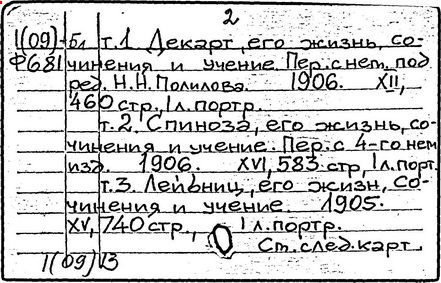 2
1(09) Бл т.1 Декарт, его жизнь, со-
Ф681 чинения и учение. Пер. с нем. под
ред. Н.Н. Полилова. 1906. XII,
460 стр., 1 л. портр.
т.2. Спиноза, его жизнь, со-
чинения и учение. Пер. с 4-го нем.
изд. 1906. XVI, 583 стр., 1 л. порт.
т.3. Лейбниц, его жизн, со-
чинения и учение. 1905.
XV, 740 стр., 1 л. портр.
См. след. карт.
1(09)